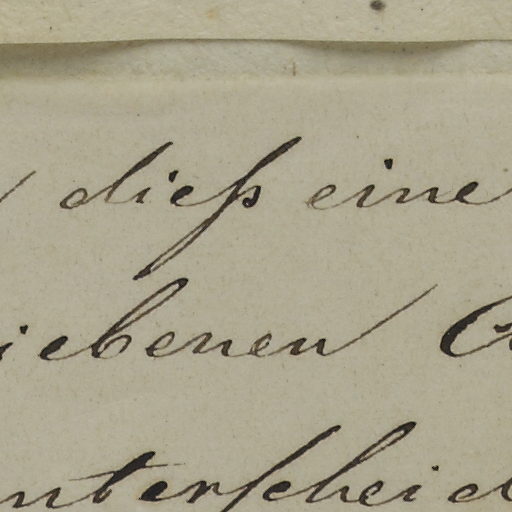 dieß eine
iebenen
unterscheid